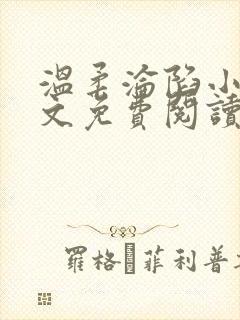 溫柔淪陷小
文免費閱讀
羅格 菲利普